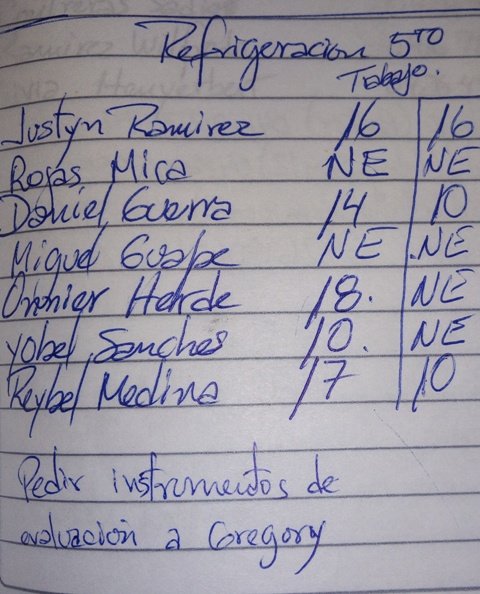 Refrigeracion 5TO
Trabajo.
Jostyn Ramirez 16 16
Rojas Mica NE NE
Daniel Guerra 14 10
Miguel Guape NE NE
18. NE
Yobel Sanches 10. NE
Reybel Medina 17 10
Pedir instrumentos de
evaluación a Gregory